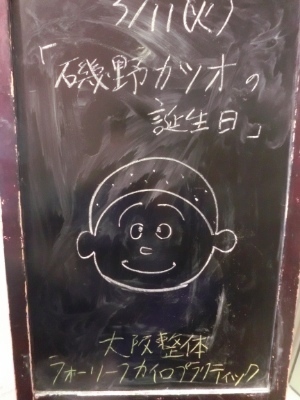 3/11(火)
「磯野カツオの
誕生日」
大阪整体
フォーリーフカイロプラクティック